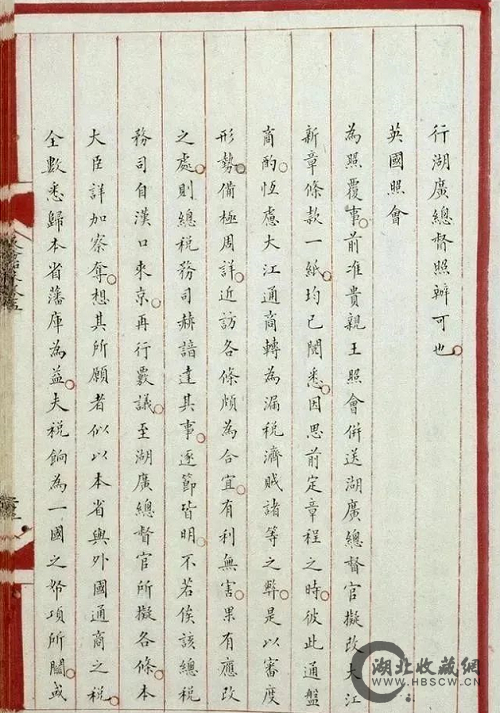 行湖廣總督照辦可也
英國照會
為照覆事前准貴親王照會併送湖廣總督官擬改大江
新章條款一紙均已閱悉因思前定章程之時彼此通盤
商酌恆慮大江通商轉為漏稅濟賊諸等之弊是以審度
形勢備極周詳近訪各條頗為合宜有利無害果有應改
之處則總稅務司赫諳達其事逐節皆明不若俟該總稅
務司自漢口來京再行覈議至湖廣總督官所擬各條本
大臣詳加察奪想其所願者似以本省與外國通商之稅
全數悉歸本省藩庫為益夫稅餉為一國之帑項所關或
湖北收藏网
WWW.HBSCW.CN